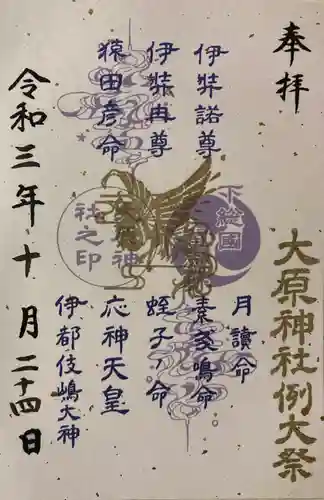 奉拝
大原神社例大祭
下総國
伊弉諾尊
伊弉冉尊
猿田彦命
月讀命
素戔嗚命
蛭子ノ命
応神天皇
伊都伎嶋大神
社之印
令和三年十月二十四日